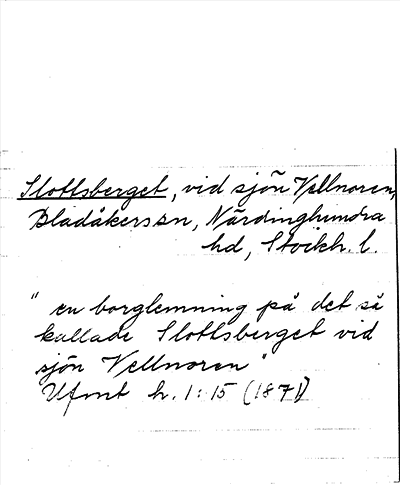 Slottsberget, vid sjön Vällnoren,
Bladåkers sn, Närdinghundra
hd, Stockh. l.
" en borglemning på det så
kallade Slottsberget vid
sjön Vellnoren "
Ufmt h. 1:15 (1871)